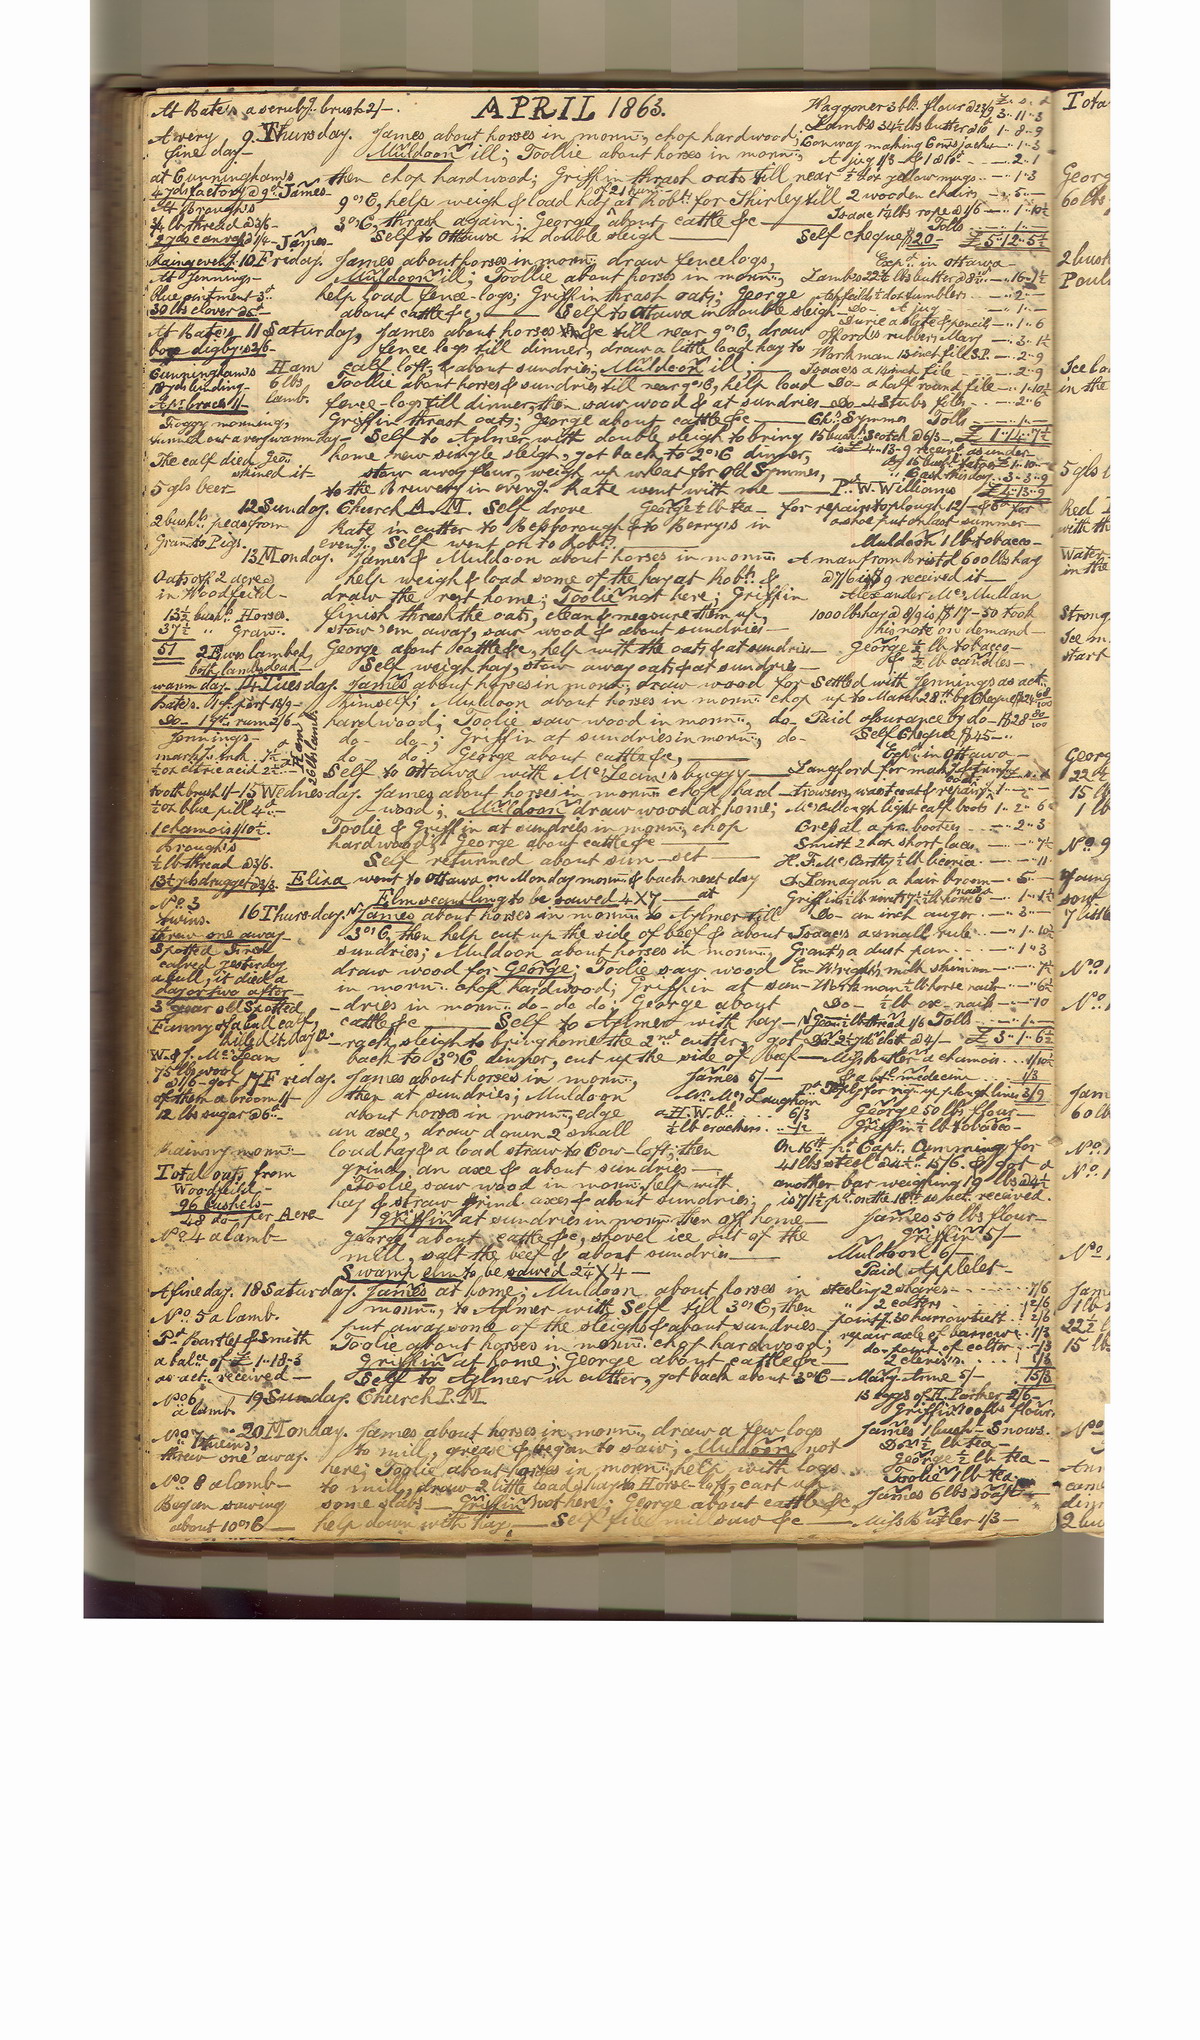 At Bate's a scrubg. brush 2/-
APRIL 1863.
Waggoner 3 bls. flour @ 23/9 3-11-3
A very 9. Thursday. James about horses in mornn., chop hardwood;
Lambs 34½ lbs butter @ 10d 1-8-9
fine day- Muldoon ill; Toollie about horses in mornn.,
Conway making Geo's jacket 1-3
A jug 1/3 & 1 @ 10d 2-1
at Cunningham's then chop hardwood; Griffin thrash oats till near
½ doz yellow mugs 1-3
4 yds factory @ 9d James 9 o'C, help weigh & load hay at Robts. for Shirley till
2 wooden chairs 5-
At Brough's 3 o'C, thrash again; George about cattle &c
Isaacs 14 lbs rope @ 1/6 1-10½
¾ lb thread @ 3/6
Tolls 1-
2 yds canvas @ 1/4- James- Self to Ottawa in double sleigh
Self cheque $20- £5-12-5½
Rainy eveng. 10 Friday. James about horses in mornn. draw fence logs,
Expd. in Ottawa-
At Jennings- Muldoon ill; Toollie about horses in mornn.,
Lambs 22½ lbs butter @ 8½ 16-
blue ointment 3d help load fence-logs; Griffin thrash oats; George
Topfeild ½ doz tumblers 2-
30 lbs clover @ 5d about cattle &c, Self to Ottawa in double sleigh
Do- A jug 1-
Durie a slate & pencil 1-6
At Bate's 11 Saturday, James about horses &c till near 9 o'C, draw
Offord's rubbers Mary 3-1½
box digby's 2/6- fence logs till dinner, draw a little load hay to
Workman 13 inch fill S.P. 2-9
Cunningham's Ham calf loft, & about sundries; Muldoon ill;
Isaacs a 14 inch file 2-9
18 yds binding- 6 lbs Toollie about horses & sundries till near 9 o'C, help load
Do- a half round file 1-10½
Apr. braces 1/ lamb. fence-logs till dinner, then saw wood & at sundries
Do- 48 tubs fols. 2-6
Froggy morning, Griffin thrash oats; George about cattle &c
Chs. Symmes Tolls 1-
turned out a very warm day- Self to Aylmer with double sleigh to bring
15 bushs. Scotch @ 6/3 £1-14-7½
The calf died Geo. home new single sleigh, got back to 2 o'C dinner,
is £4-13-9 receivd. as under
skined it stow away flour, weigh up wheat for Old Symmes,
By 15 bush. tatoes £1-10-
By Cash this day 3-3-9
5 gls beer to the Brewery in eveng. Kate went with me
Pd. W. Williams £4-13-9
12 Sunday. Church A.M. Self drove
George ½ lb tea- for repairs to plough 12/- & 6d for
2 bushs. peas from Kate in cutter to Bessborough & to Berry's in
a shoe put on last summer-
Gran. to Pigs. eveng. Self went on to Robts.
Muldoon 1 lb tobacco-
13 Monday. James & Muldoon about horses in mornn.
A man from Bristol 600 lbs hay
Oats off 2 acres help weigh & load some of the hay at Robts. &
@ 7/6 is $9 received it-
in Woodfeild- draw the rest home; Toolie not here; Griffin
Alexander McMullan
13½ bushs. Horses. finish thrash the oats, clean & measure them up,
1000 lbs hay @ 8/9 is $17-50 took
37½ " Gran. stow 'em away, saw wood & about sundries-
his note on demand-
51 2 Ewes lambed, George about cattle &c, help with the oats & at sundries-
George ½ lb tobacco-
both lambs dead- Self weigh hay, stow away oats & at sundries-
& ½ lb candles-
warm day- 14 Tuesday. James about horses in mornn., draw wood for
Settled with Jennings as act.
Bate's. 1 gl. port 13/9- himself; Muldoon about horses in mornn. chop
up to March 28th by Cheque $24 68/100
Do- 1 qt. rum 2/6- hardwood; Toolie saw wood in mornn., do-
Paid assurance by do- $28 80/100
Jennings- do- do-; Griffin at sundries in mornn., do-
Self Cheque $45-
markg. ink 7½d do- do-; George about cattle &c,
Expd. in Ottawa-
½ oz citric acid 2½d Self to Ottawa with McLean's buggy
Langford for makg.
tooth brush 1/- 15 Wednesday. James about horses in mornn. chop hard
trousers, waistcoat & repairg.
½ oz blue pill 4d wood; Muldoon draw wood at home;
McCullough light calf boots 1-2-6
1 chamois 1/10½. Toolie & Griffin at sundries in mornn., chop
Gressal a pr. booties 2-3
Brough's hardwood; George about cattle &c
Smith 2 hat short laces 7½
½ lb thread @ 3/6. Self returned about sun-set
H. F. McCarthy ½ lb licorice 11
13½ yds drugget @ 3/3. Eliza went to Ottawa on Monday mornn. & back next day
D. Lanagan a hair broom 5-
No. 3 Elm scantling to be sawed 4 X 7 at
twins. 16 Thursday. James about horses in mornn. to Aylmer till
Do- an inch auger 3-
threw one away 3 o'C, then help cut up the side of beef & about
Isaacs a small rule 1-10½
Spotted Fired sundries; Muldoon about horses in mornn.,
Grants a dust pan 1-3
calved yesterday draw wood for George; Toolie saw wood
En. Wright's milk skimmer 7½
a bull, it died a in mornn. chop hardwood; Griffin at sun-
Workman ½ lb horse nails 6½
day or two after -dries in mornn. do- do- do; George about
Do- ½ lb ox- nails 10
3 year old Spotted cattle &c Self to Aylmer with hay-
Geo. ½ lb thread 1/6 Tolls 1-
Funny of a bull calf, -rack, sleigh to bring home the 2nd cutter, got
Do. 2½ yds cloth @ 4/- £3-1-6½
killed it.
W. & J. McLean back to 3 o'C dinner, cut up the side of beef-
Miss Butler a chamois 1/10½
75 lbs wool
& a btl. medecine 1/3
@ 1/6- got 17 Friday. James about horses in mornn.,
James 5/-
Pd. Foley for rig-up plough lines 3/9
of them a broom 1/- then at sundries; Muldoon
Mr. McLaughlin
George 50 lbs flour-
12 lbs sugar @ 6d about horses in mornn., edge
a H.W.bt. 6/3
Griffin ½ lb tobacco-
an axe, draw down 2 small
½ lb crackers. -/½
Rainy mornn- load hay & a load straw to Cow-loft; then
On 16th pd. Capt. Cumming for
Total oats from grind an axe & about sundries-
41 lbs steel @ 4½d 15/6. & got a
Woodfeild- Toolie saw wood in mornn., help with
another bar weighing 19 lbs @ 4½
96 bushels- hay & straw grind axes & about sundries;
is 7/1½ pd. on the 18th as act. received.
48 do- per Acre Griffin at sundries in mornn. then off home
James 50 lbs flour-
No. 4 a lamb- George about cattle &c, shovel ice out of the
Griffin 5/-
mill, salt the beef & about sundries
Muldoon 6/-
Swamp elm to be sawed 2¼ X 4-
Paid Applelet-
A fine day. 18 Saturday. James at home; Muldoon about horses in
steeling 2 shares 7/6
No. 5 a lamb. mornn., to Aylmer with Self till 3 o'C, then
" 2 colters 12/6
put away some of the sleighs & about sundries
pointg. 30 harrow teeth 2/6
Pd. Bartley & Smith Toolie about horses in mornn. chop hardwood;
repair axle of barrow 1/3
a balce. of £1-18-3 Griffin at home; George about cattle &c
do- point of colter 1/3
2 clevis's 1/3
as act. received- Self to Aylmer in cutter, got back about 3 o'C-
Mary Anne 5/- 15/3
No. 6 a lamb. 19 Sunday. Church P.M.
15 eggs of H. Parker 2/6-
Griffin 100 lbs flour.
No. 7 Twins, 20 Monday. James about horses in mornn., draw a few logs
James 1 bush- Snows.
threw one away. to mill, grease & began to saw; Muldoon not
Do- ½ lb tea-
here; Toolie about horses in mornn., help with logs
George ½ lb tea-
No. 8 a lamb- to mill, draw 2 little loads hay to Horse-loft, cart up
Toolie 1 lb tea-
Began sawing some slabs- Griffin not here; George about cattle &c
James 6 lbs soap-
about 10 o'C help down with hay, Self filed mill saw &c
Miss Butler 1/3-
Tota
Georg
60 lbs
2 bush
Paul
Ice bo
in the
5 gls
Red
with th
Water
in the
Strong
Ice m
start
Georg
22½
15 lb
1 lb
No. 9
Young
sout
7 little
No. 1
No. 1
Jam
60 lb
No. 1
No. 1
No. 1
Jam
1 lb
22½ l
15 lbs
No.
Ann
came
dinn
2 bu